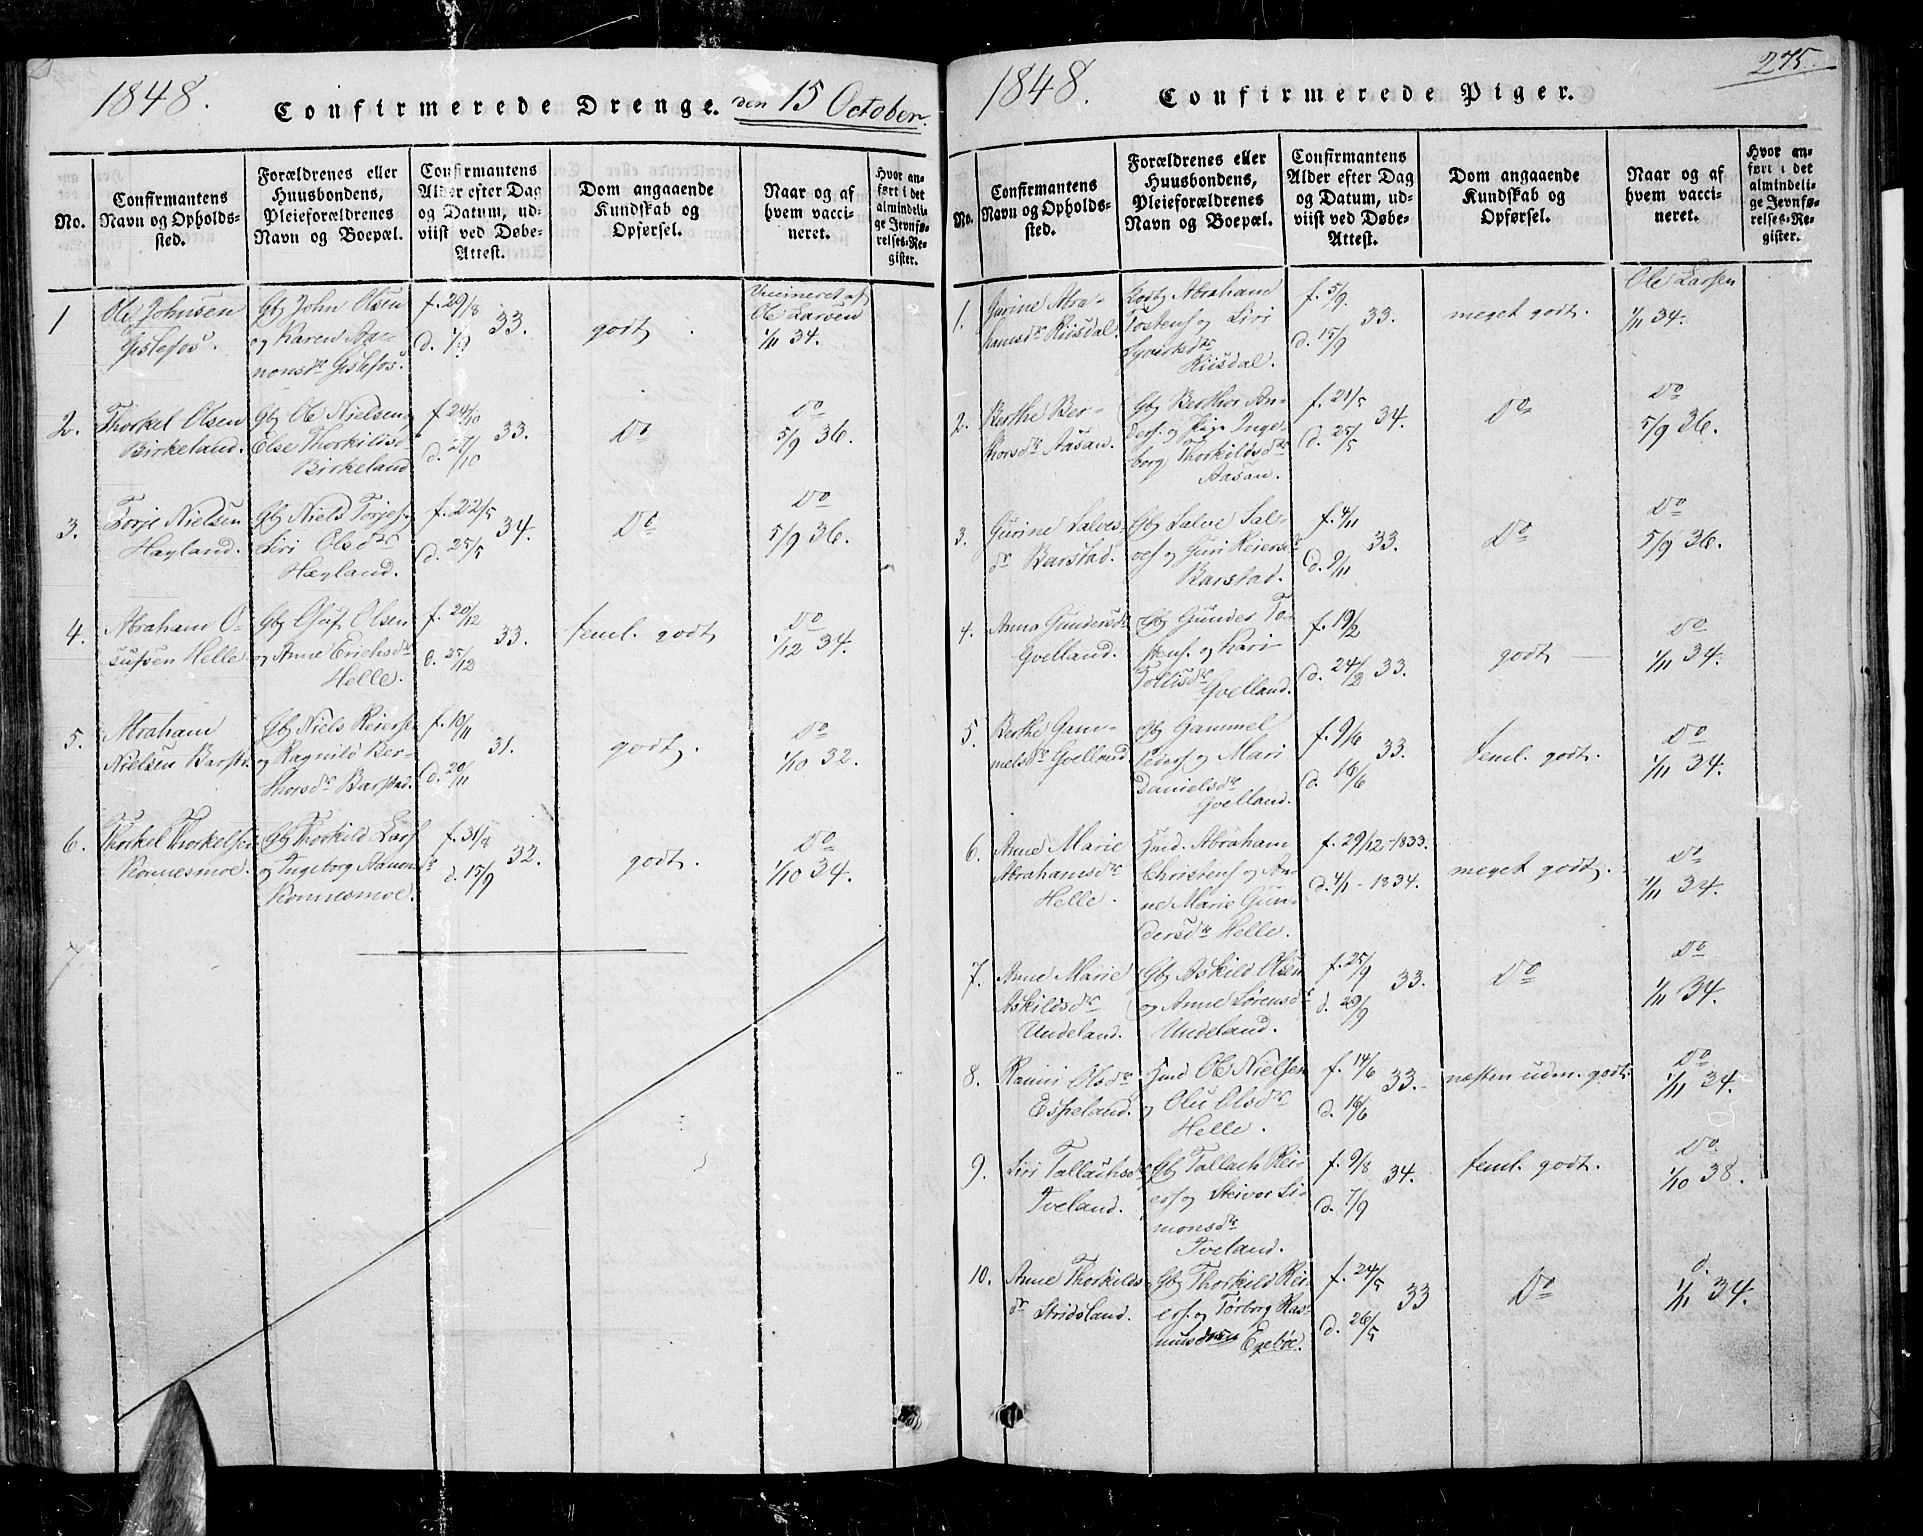 1848.
Confirmerede Drenge. den 15 October.
No.
Confirmantens
Navn og Opholds-
sted.
Forældrenes eller
Huusbondens,
Pleieforældrenes
Navn og Boepæl.
Confirmantens
Alder efter Dag
og Datum, ud-
viist ved Døbe-
Attest.
Dom angaaende
Kundskab og
Opførsel.
Naar og af
hvem vacci-
neret.
Hvor an-
ført i det
almindeli-
ge Jevnfø-
relses-Re-
gister.
1
Ole Johnsen
Gislefos.
Gb John Olsen
og Karen Aa-
nonsdr Gislefos.
f. 29/8
d. 1/9
33.
godt.
Vaccineret af
Ole Larsen
1/11 34.
2.
Thorkel Olsen
Birkeland.
Gb Ole Nielsen og
Else Thorkildsd
Birkeland
f. 24/10
d. 27/10
33.
Do
Do
5/9 36.
3.
Torje Nielsen
Høyland.
Gb Niels Torjes. og
Siri Olsdr
Høyland.
f. 22/5
d. 25/5
34.
Do
Do
5/9 36.
4.
Abraham O-
sufsen Helle
Gb Osuf Olsen
og Anne Erichsdr
Helle.
f. 20/12
d. 25/12
33.
teml. godt
Do
1/12 34.
5.
Abraham
Nielsen Barst.
Gb Niels Reiers.
og Ragnild Ber-
thorsdr Barstad.
f. 10/11
d. 20/11
31.
godt.
Do
1/10 32.
6.
Thorkel Thorkelsen
Konnesmoe.
Gb Thorkild Lars.
og Ingeborg Aanonsdr
Konnesmoe.
f. 31/8
d. 15/9
32.
godt.
Do
1/10 34.
275.
1848.
Confirmerede Piger.
No.
Confirmantens
Navn og Opholds-
sted.
Forældrenes eller
Huusbondens,
Pleieforældrenes
Navn og Boepæl.
Confirmantens
Alder efter Dag
og Datum, ud-
viist ved Døbe-
Attest.
Dom angaaende
Kundskab og
Opførsel.
Naar og af
hvem vacci-
neret.
Hvor an-
ført i det
almindeli-
ge Jevnfø-
relses-Re-
gister.
1.
Gurine Abra-
hamsdr Riisdal.
Abraham
Tostens. og Siri
Syvertsdr
Riisdal.
f. 5/9.
d. 15/9
33.
meget godt.
Ole Larsen
1/11 34.
2.
Berthe Ber-
thorsdr Aasan.
Gb Berthor An-
ders. og Pige Inge-
borg Thorkildsdr
Aasan.
f. 21/5
d. 25/5
34.
Do
Do
5/9 36.
3.
Gurine Salves-
dr Barstad.
Gb Salve Sal-
ves. og Guri Reiersdr
Barstad.
f. 4/11
d. 9/11
33.
Do
Do
5/9 36.
4.
Anna Gundersdr
Qvelland.
Gb Gunder To-
stens. og Kari
Tollisdr
Qvelland.
f. 19/2
d. 24/2
33.
godt
Do
1/11 34.
5.
Berthe Gam-
melsdr Qvelland
Gb Gammel
Peders. og Mari
Danielsdr
Qvelland.
f. 9/6
d. 16/6
33.
teml. godt.
Do
1/11 34.
6.
Anne Marie
Abrahamsdr
Helle.
Hmd. Abraham
Christens. og An-
ne Marie Gun-
dersdr Helle.
f. 29/12-1833.
d. 4/1 - 1834.
meget godt.
Do
1/11 34.
7.
Anne Marie
Askildsdr
Undeland.
Gb Askild Olsen
og Anne Sørensdr
Undeland.
f. 25/9
d. 29/9
33.
Do
Do
1/11 34.
8.
Ranni Olsdr
Espeland.
Hmd Ole Nielsen
og Olu Olsdr
Helle.
f. 14/6
d. 16/6
33.
næsten udm. godt.
Do
1/11 34.
9.
Siri Tallachsdr
Tveland.
Gb Tallach Rei-
ers. og Steivor Si-
monsdr
Tveland.
f. 9/8
d. 7/9
34.
teml. godt.
Do
1/10 38.
10.
Anne Thorkilds-
dr Stridsland.
Gb Thorkild Rei-
ers. og Torborg Ras-
musdren Egebøe.
f. 24/5
d. 26/5
33
Do
do
1/11 34.